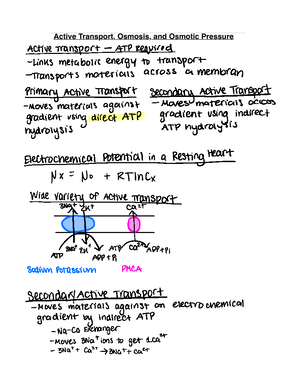 Active Transport, Osmosis, and Osmotic Pressure
Active Transport — ATP Required
-Links metabolic energy to transport
-Transports materials across a membran
Primary Active Transport
-Moves materials against
gradient using direct ATP
hydrolysis
Secondary Active Transport
-Moves materials across
gradient using indirect
ATP hydrolysis
Electrochemical Potential in a Resting Heart
μx = μo + RTlnCx
Wide Variety of Active Transport
3Na⁺ 2K⁺ Ca²⁺
ATP 3Na⁺ 2K⁺ ADP+Pi ATP Ca²⁺ ADP+Pi
Sodium Potassium PMCA
Secondary Active Transport
-Moves materials against an electrochemical
gradient by indirect ATP
-Na-Ca Exchanger
-Moves 3Na⁺ ions to get 1 Ca²⁺
-3Na⁺ + Ca²⁺ → 3Na⁺ + Ca²⁺